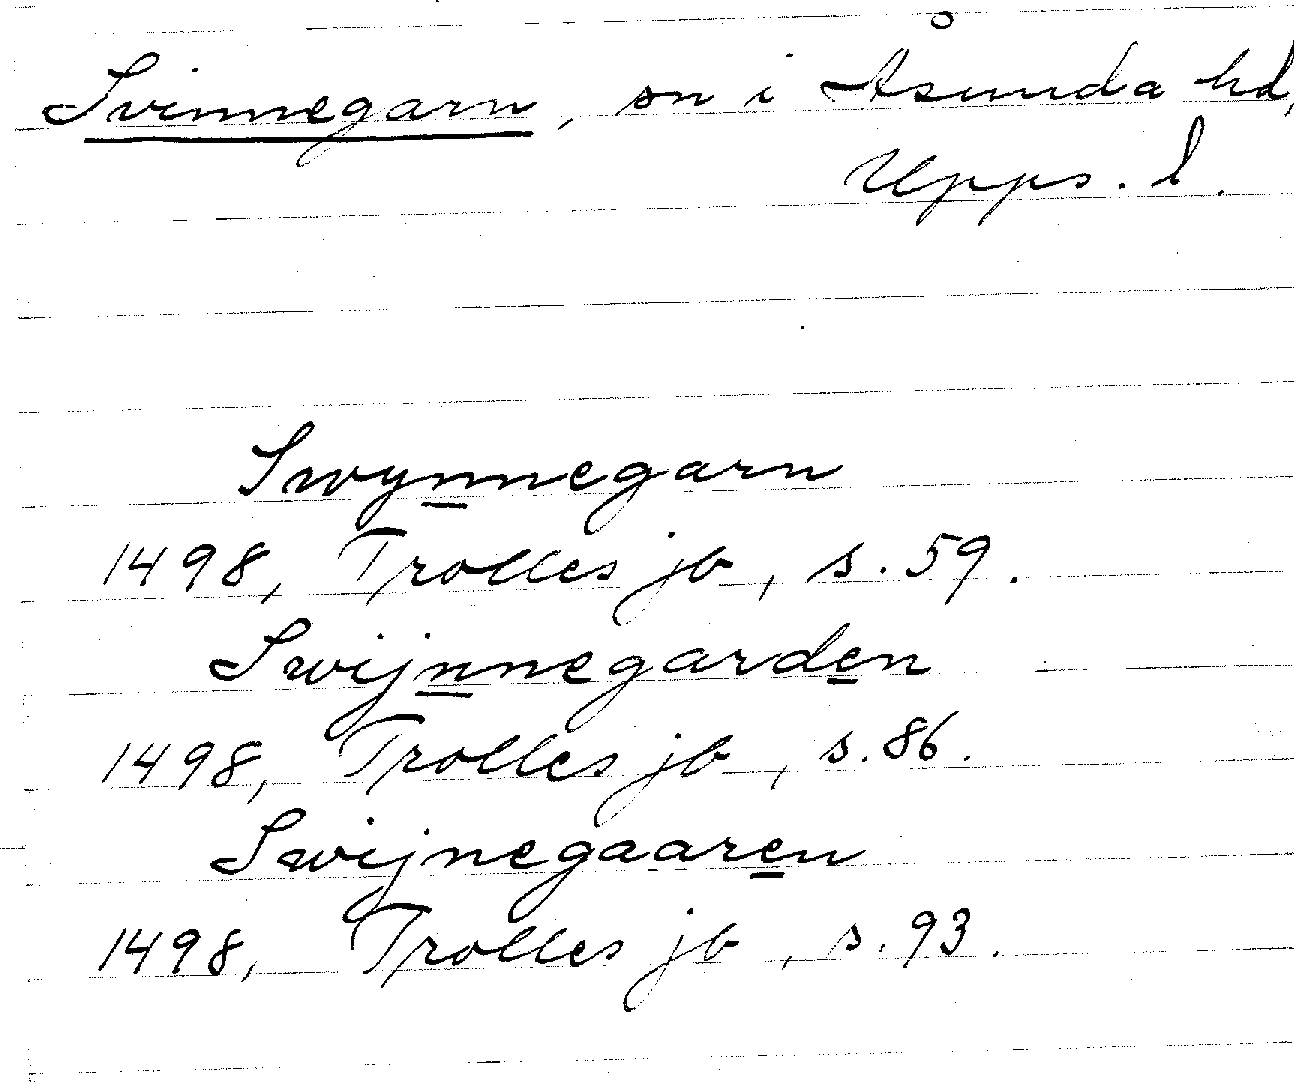 Svinnegarn, sn i Åsunda hd,
Upps. l.
Swynnegarn
1498, Trolles jb, s. 59.
Swijnnegarden
1498, Trolles jb, s. 86.
Swijnegaaren
1498, Trolles jb, s. 93.